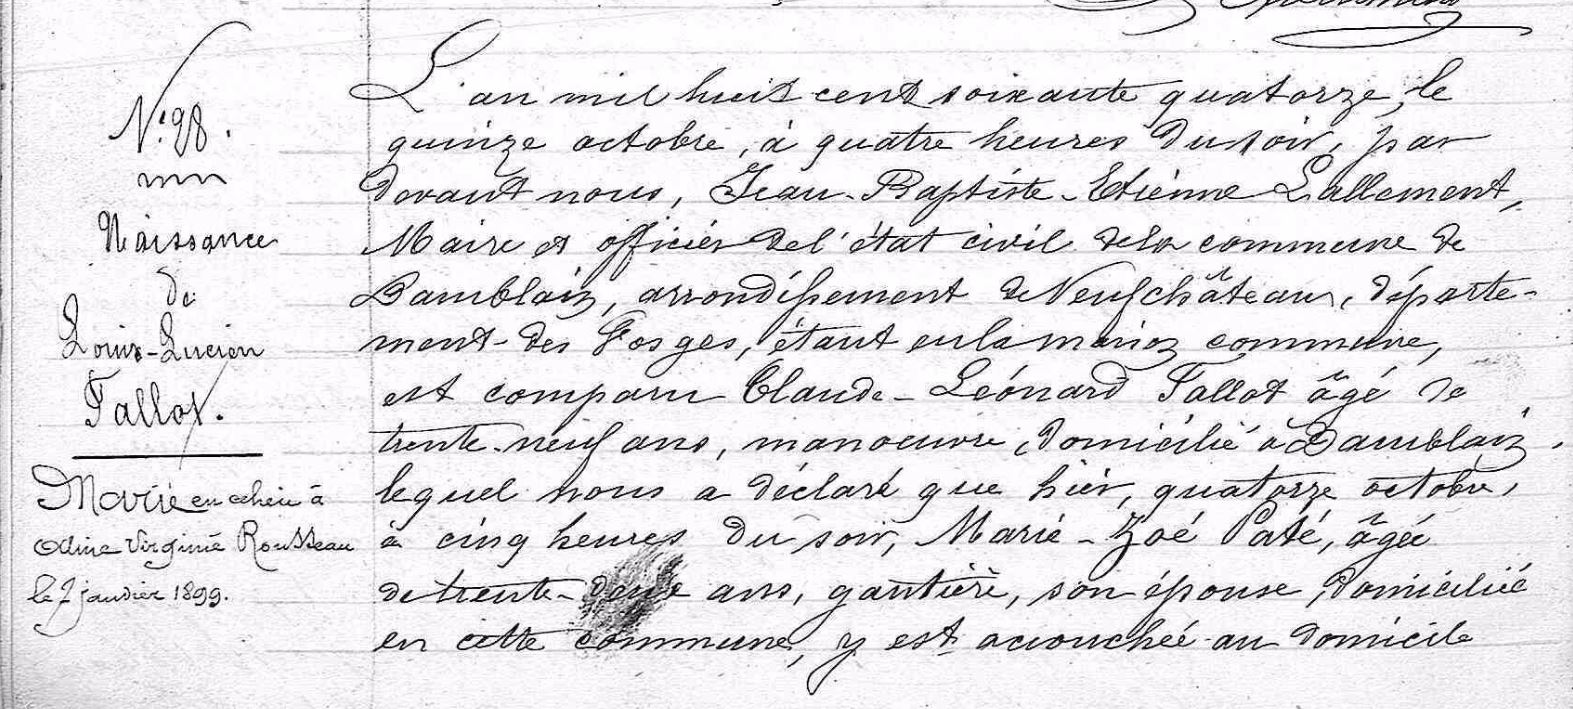 N° 98.
Naissance
de
Louis-Lucien
Tallot.
Marié en cette
Odine Virginie Rousseau
le 7 janvier 1899.
L'an mil huit cent soixante quatorze, le
quinze octobre, à quatre heures du soir, par
devant nous, Jean-Baptiste-Etienne Lallement,
Maire et officier de l'état civil de la commune de
Damblain, arrondissement de Neufchâteau, départe-
ment des Vosges, étant en la maison commune,
est comparu Claude-Léonard Tallot âgé de
trente-neuf ans, manoeuvre, domicilié à Damblain,
lequel nous a déclaré que hier, quatorze octobre,
à cinq heures du soir, Marie-Zoé Paté, âgée
de trente-deux ans, gantière, son épouse, domiciliée
en cette commune, y est accouchée au domicile